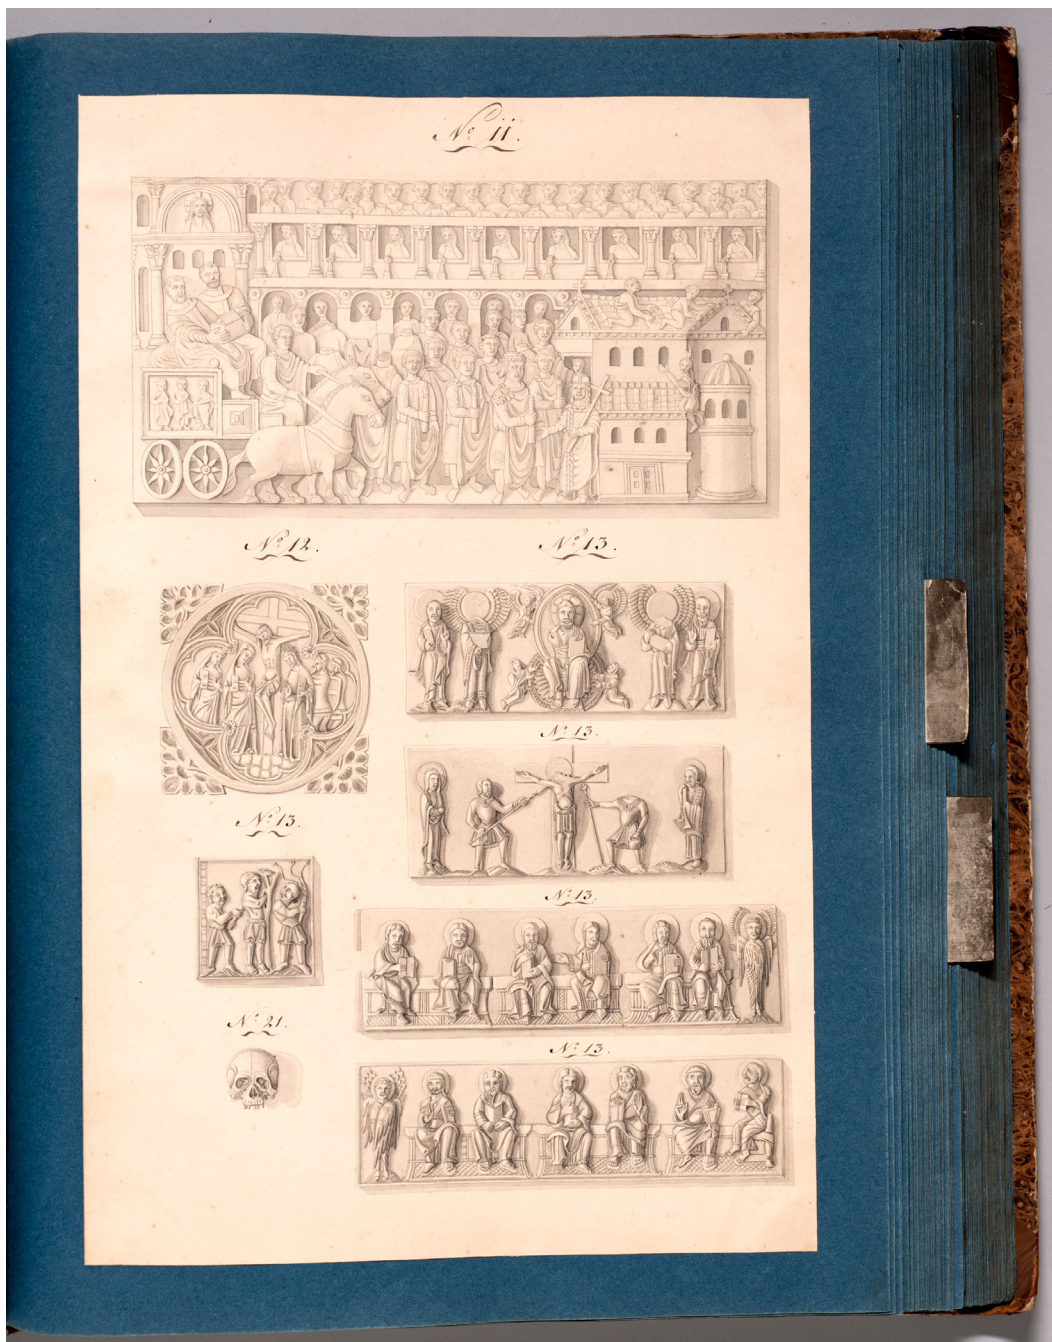 No. 11.
No. 12.
No. 13.
No. 13.
No. 13.
No. 13.
No. 21.
No. 13.